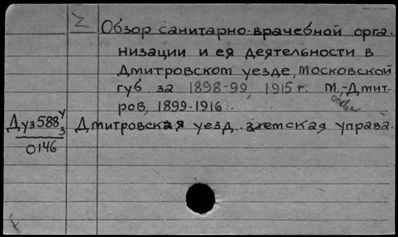 Σ
Обзор санитарно-врачебной орга-
низации и ея деятельности в
Дмитровском уезде, Московской
губ за 1898-99, 1915 г. М,-Дмит-
ров, 1899-1916.
Дуз588 У/3
0146
Дмитровская уезд. земская управа.